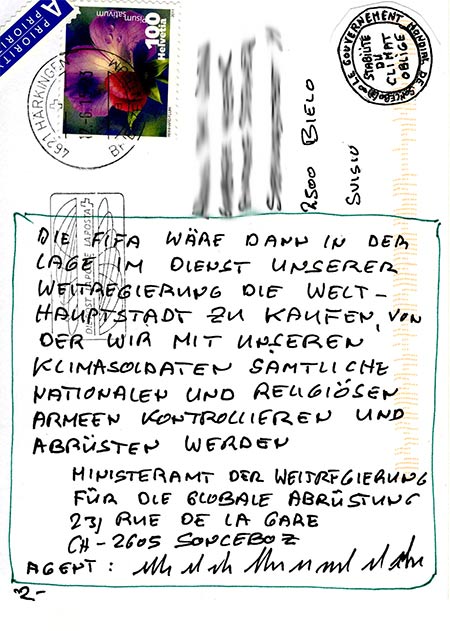 A PRIORITY
PRIORITAIRE
Pisum
sativum
100
Helvetia
4621 HÄRKINGEN
LE GOUVERNEMENT MONDIAL DE SONCEBOZ
STABILITÉ
DU
CLIMAT
OBLIGE
2500 BIELO
SUISIO
DIE FIFA WÄRE DANN IN DER
LAGE IM DIENST UNSERER
WELTREGIERUNG DIE WELT-
HAUPTSTADT ZU KAUFEN, VON
DER WIR MIT UNSEREN
KLIMASOLDATEN SÄMTLICHE
NATIONALEN UND RELIGIÖSEN
ARMEEN KONTROLLIEREN UND
ABRÜSTEN WERDEN
MINISTERAMT DER WELTREGIERUNG
FÜR DIE GLOBALE ABRÜSTUNG
23, RUE DE LA GARE
CH-2605 SONCEBOZ
AGENT:
2-